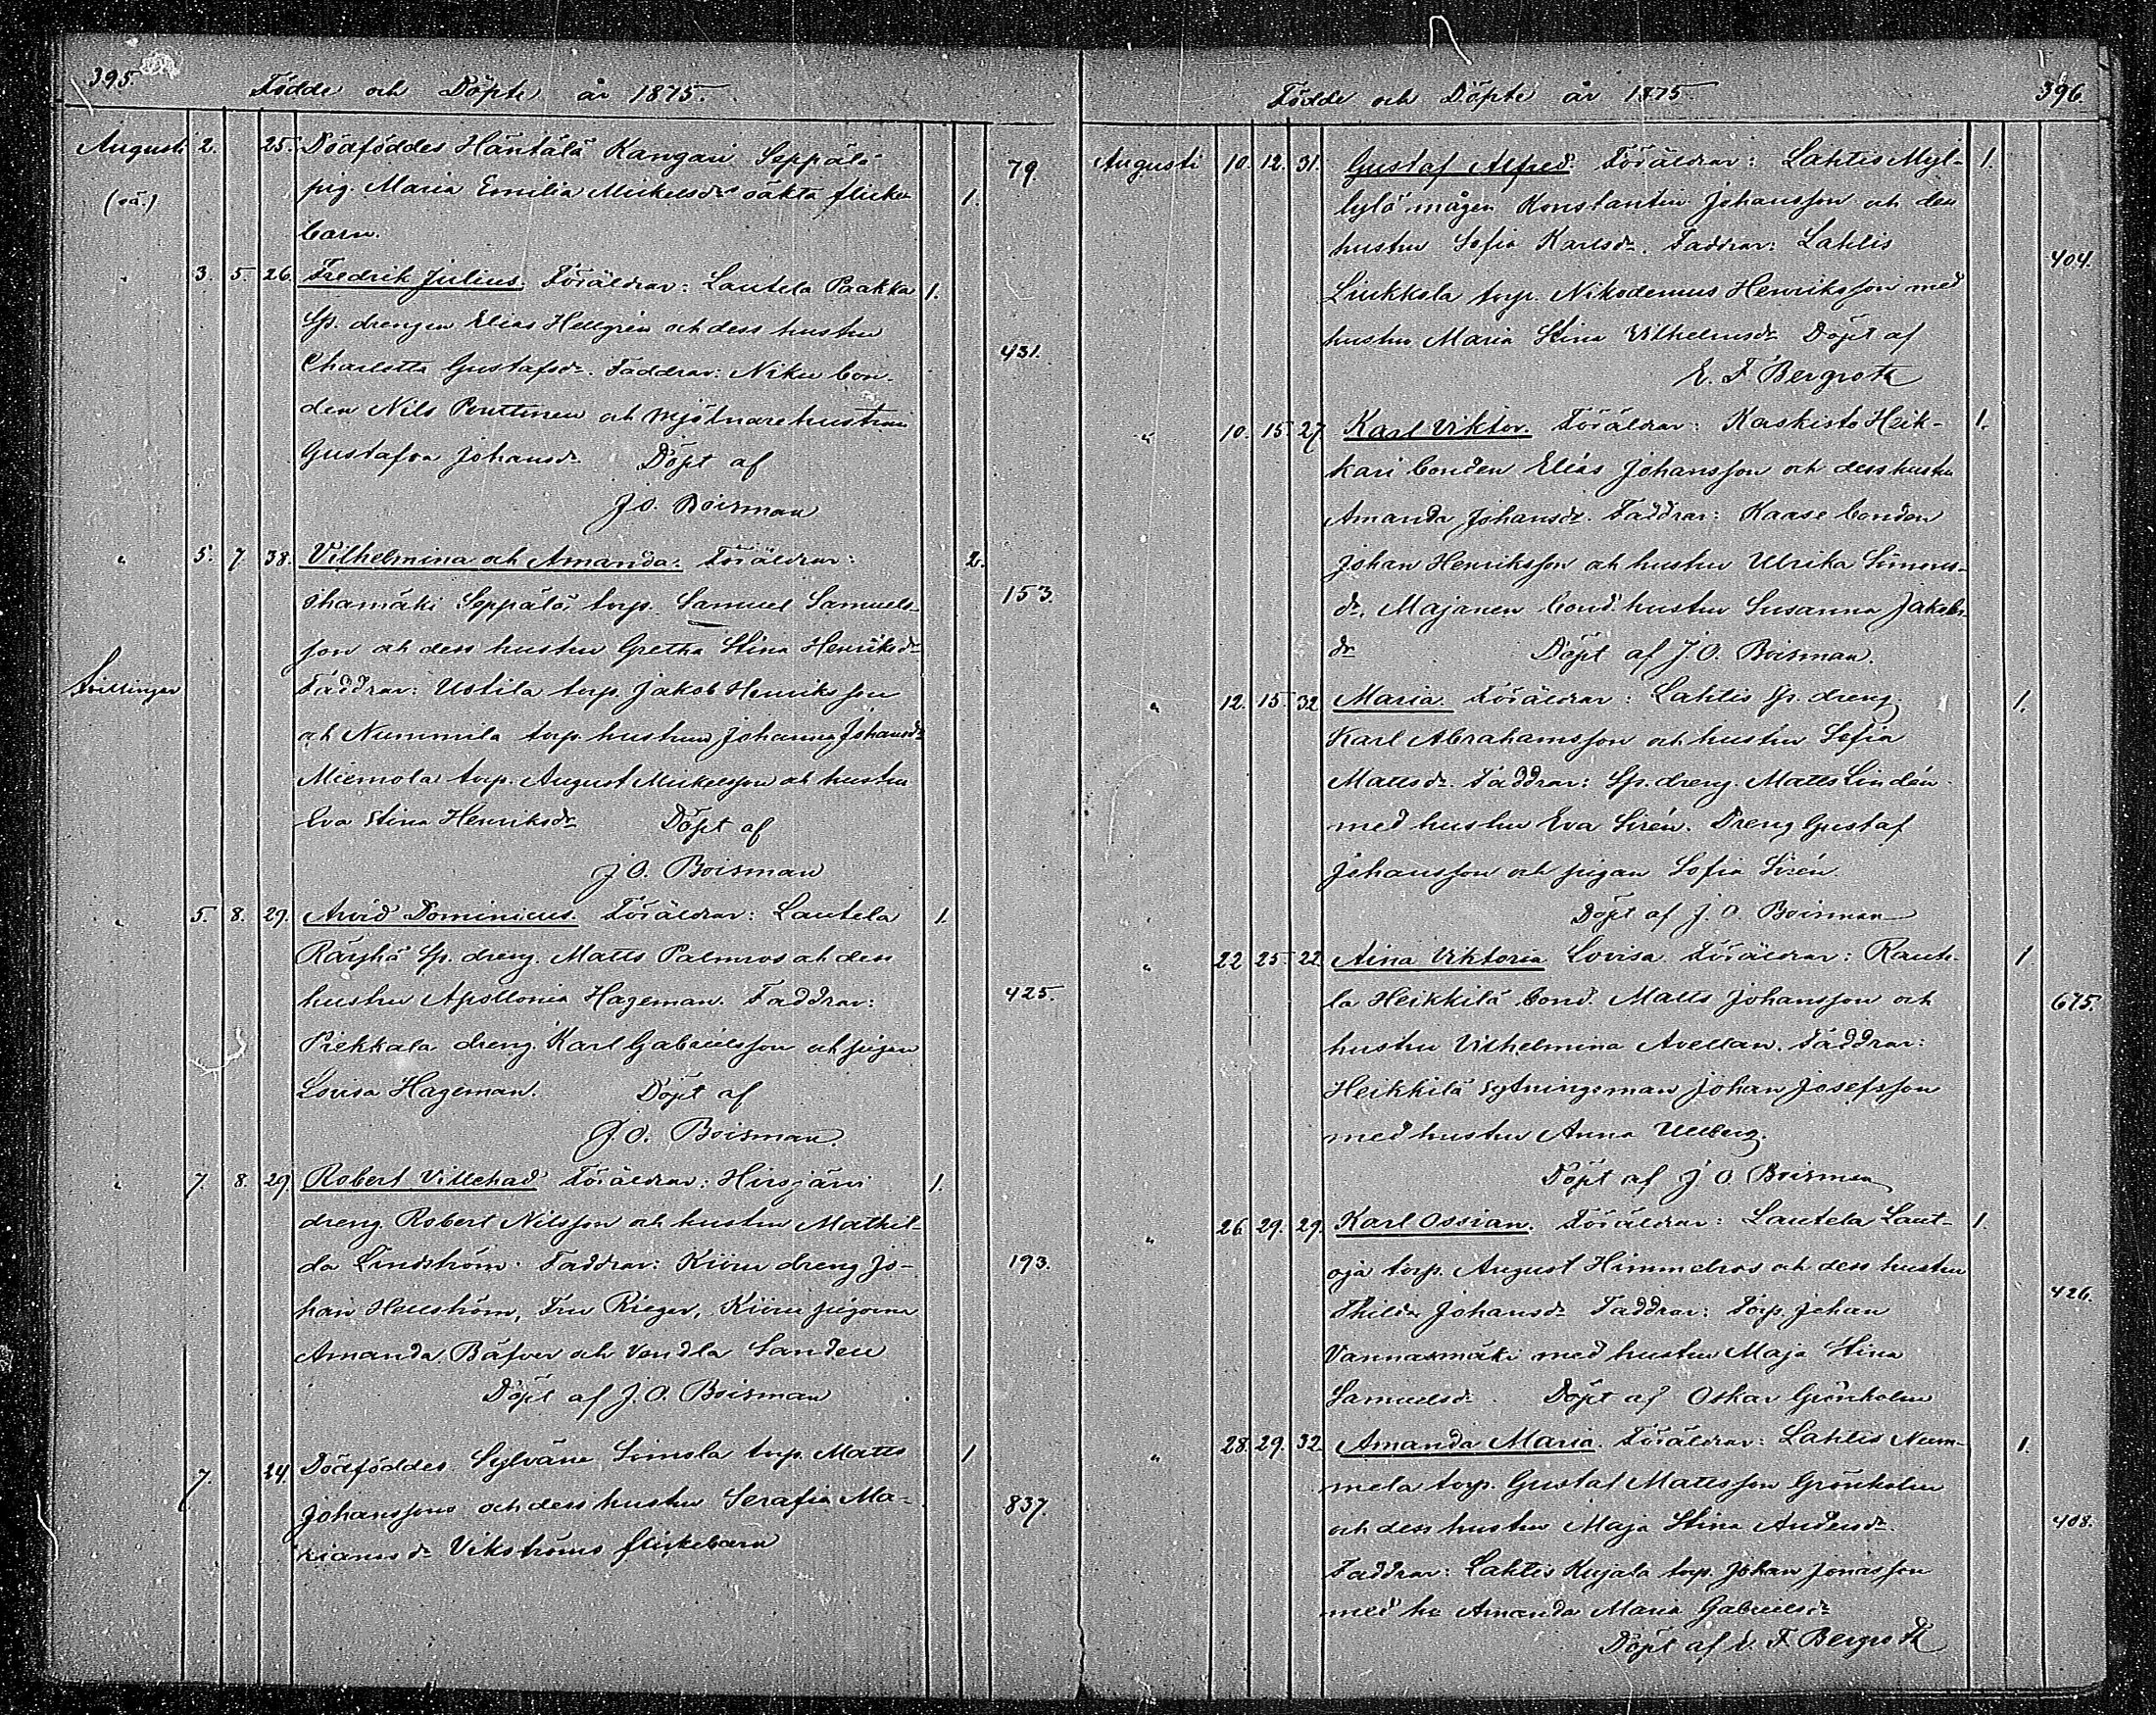 395.
Födde och Döpte år 1875.
Augusti 2. 25. Dödföddes Häntälä Kangari Seppälä
(oä.) pig. Maria Emilia Mickelsdr oäkta flicke- 1. 79
barn.
" 3. 5. 26. Fredrik Julius. Föräldrar: Lautela Paakka 1.
Sp. drengen Elias Hellgrén och dess hustru
Charlotta Gustafsdr. Faddrar: Niku bon- 431.
den Nils Penttinen och Mjölnarehustrun
Gustafva Johansdr Döpt af
J.O. Boisman
" 5. 7. 38. Vilhelmina och Amanda. Föräldrar: 2.
Ihamäki Seppälä torp. Samuel Samuels- 153.
son och dess hustru Gretha Stina Henriksdr
Tvillingar Faddrar: Ustila torp. Jakob Henriksson
och Nummila torp. hustrun Johanna Johansdr
Miemola torp. August Mickelsson och hustru
Eva Stina Henriksdr Döpt af
J.O. Boisman
" 5. 8. 29. Arvid Dominicus. Föräldrar: Lautela 1.
Räyhä Sp. dreng. Matts Palmros och dess
hustru Apollonia Hageman. Faddrar: 425.
Piekkala dreng. Karl Gabrielsson och pigan
Lovisa Hageman. Döpt af
J.O. Boisman.
" 7. 8. 29. Robert Villehad Föräldrar: Hirsjärvi 1.
dreng Robert Nilsson och hustru Mathil-
da Lindström. Faddrar: Kiöru dreng Jo- 193.
han Hellström, Fru Rieger, Kiöru pigorna
Amanda Bäfver och Vendla Sandell
Döpt af J.O. Boisman
7. 24. Dödföddes Sylväne Simola torp. Matts 1
Johanssons och dess hustru Serafia Ma- 837.
kianssdr Vikströms flickebarn
396.
Födde och Döpte år 1875
Augusti 10. 12. 31. Gustaf Alfred. Föräldrar: Lahtis Myl- 1.
lylä mågen Konstantin Johansson och dess
hustru Sofia Karlsdr. Faddrar: Lahtis 404.
Liukkola torp. Nikodemus Henriksson med
hustru Maria Stina Vilhelmsdr Döpt af
E. F. Bergroth
" 10. 15. 27. Karl Viktor. Föräldrar: Kaskisto Heik- 1.
kari bonden Elias Johansson och dess hustru
Amanda Johansdr. Faddrar: Kaase bonden
Johan Henriksson och hustru Ulrika Simons-
dr, Majanen bond. hustru Susanna Jakobs
dr Döpt af J.O. Boisman.
" 12. 15. 32 Maria. Föräldrar: Lahtis Sp. dreng 1.
Karl Abrahamsson och hustru Sofia
Mattsdr. Faddrar: Sp. dreng. Matts Lindén
med hustru Eva Sirén. Dreng Gustaf
Johansson och pigan Sofia Sirén
Döpt af J.O. Boisman
" 22 25. 22. Aina Viktoria Lovisa. Föräldrar: Raute- 1
la Heikkilä bond. Matts Johansson och 675.
hustru Vilhelmina Avellan. Faddrar:
Heikkilä sytningsman Johan Josefsson
med hustru Anna Ullberg.
Döpt af J.O. Boisman
" 26. 29. 29. Karl Ossian. Föräldrar: Lautela Laut- 1.
oja torp. August Himmelros och dess hustru
Thilda Johansdr Faddrar: Torp. Johan 426.
Vannasmäki med hustru Maja Stina
Samuelsdr. Döpt af Oskar Grönholm
" 28. 29. 32. Amanda Maria. Föräldrar: Lahtis Num- 1.
mela torp. Gustaf Mattsson Grönholm
och dess hustru Maja Stina Andersdr. 408.
Faddrar: Lahtis Kujala torp. Johan Jonasson
med hu Amanda Maria Gabrielsdr
Döpt af E. F. Bergroth